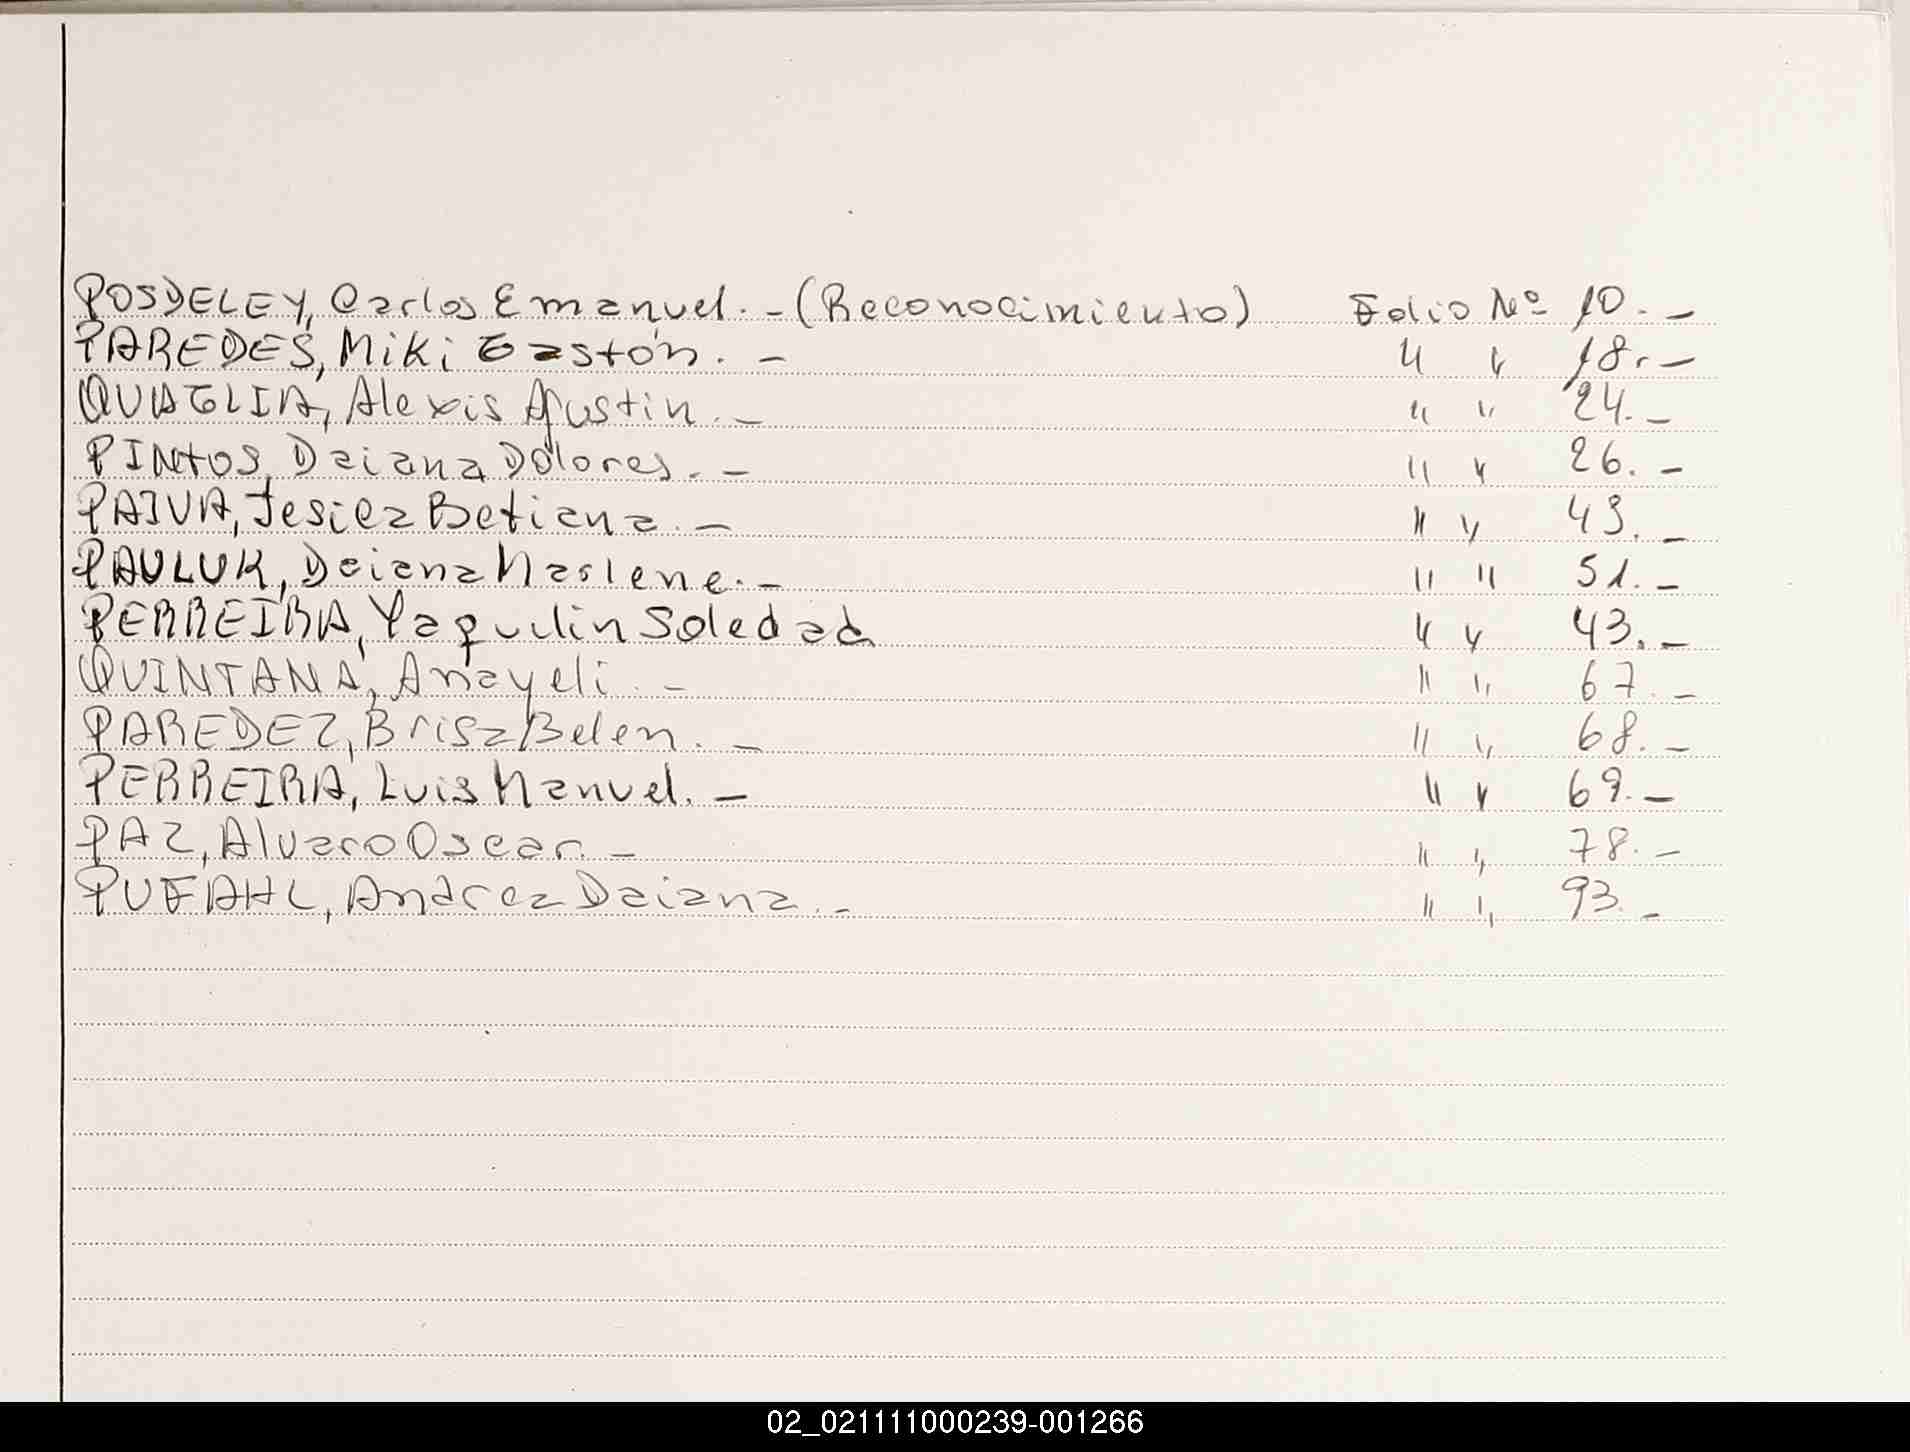 POSDELEY, Carlos Emanuel.-(Reconocimiento) Folio Nº 10.-
PAREDES, Miki Gastón.- " " 18.-
QUAGLIA, Alexis Agustin.- " " 24.-
PINTOS, Daiana Dolores.- " " 26.-
PAIVA, Jesica Betiana.- " " 43.-
PAULUK, Daiana Marlene.- " " 51.-
PERREIRA, Yaquulin Soledad " " 43.-
QUINTANA, Anayeli.- " " 67.-
PAREDEZ, Brisa Belen.- " " 68.-
PERREIRA, Luis Manuel.- " " 69.-
PAZ, Alvaro Oscar.- " " 78.-
PUFAHL, Andrea Daiana.- " " 93.-
02_021111000239-001266